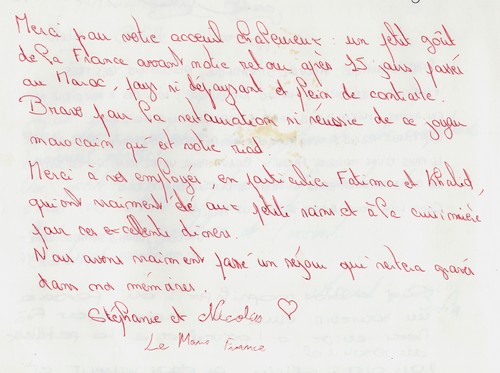 Merci pour votre acceuil chaleureux : un petit goût
de la France avant notre retour après 15 jours passés
au Maroc, pays si dépaysant et plein de contraste.
Bravo pour la restauration si réussie de ce joyau
marocain qu'est votre riad.
Merci à vos employés, en particulier Fatima et Khalid,
qui ont vraiment été aux petits soins et à la cuisinière
pour ces excellents diners.
Nous avons vraiment passé un séjour qui restera gravés
dans nos mémoires.
Stéphanie et Nicolas ♡
Le Mans France